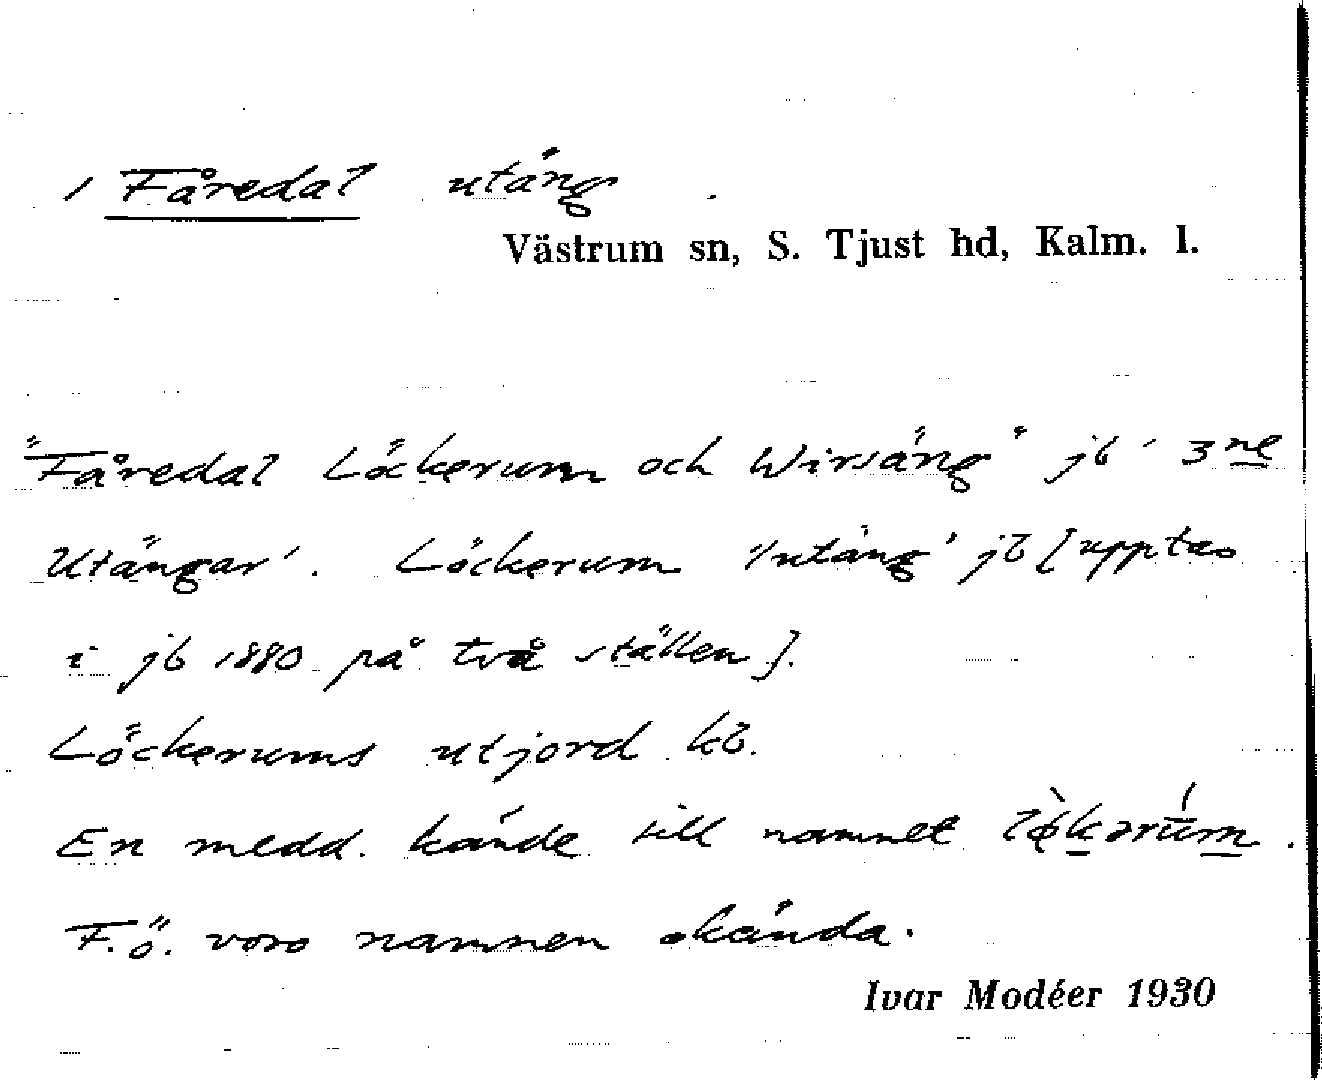 / Fåredal utäng
Västrum sn, S. Tjust hd, Kalm. l.
"Fåredal Löckerum och Wirsäng" jb ' 3ne
Utängar'. Löckerum 'utäng' jb [upptas
i jb 1880 på två ställen].
Löckerums utjord kb.
En medd. kände till namnet
F.ö. voro namnen okända.
Ivar Modéer 1930